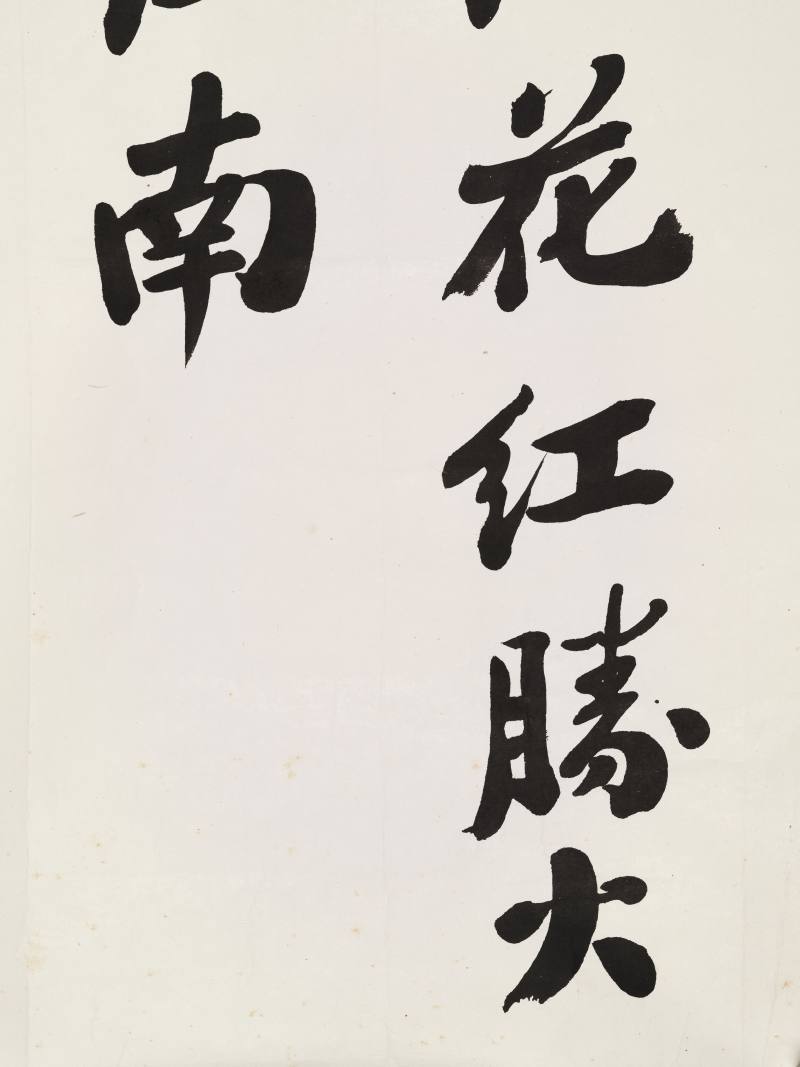 花红勝火
南